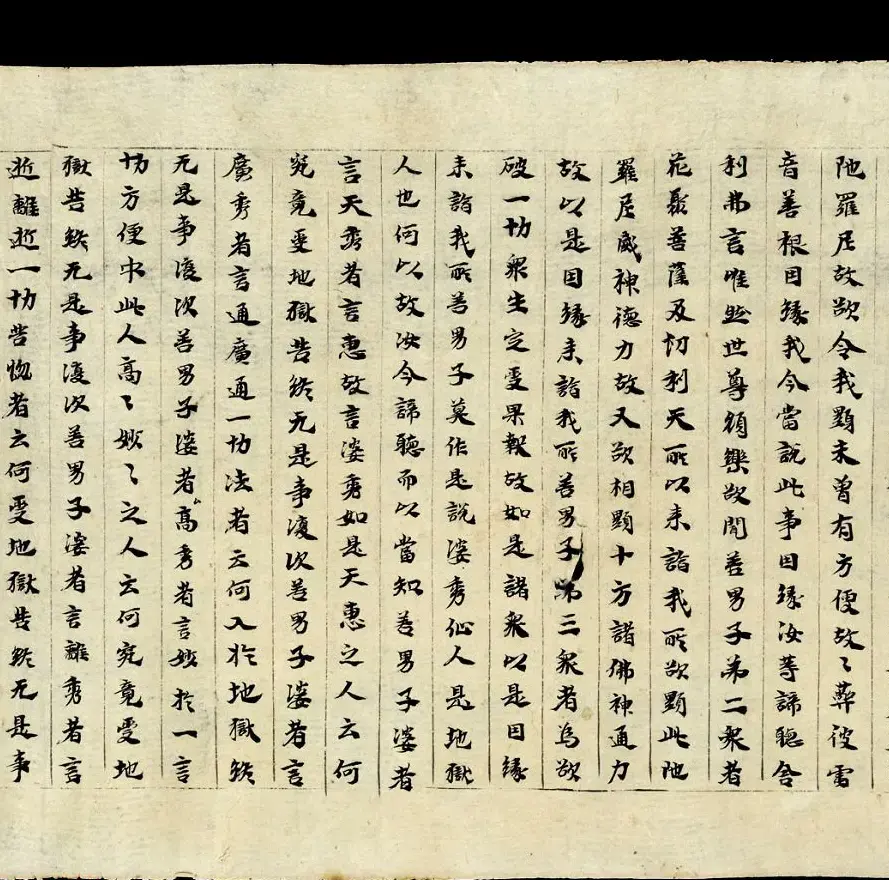 陁羅尼故欲令我顯未曾有方便故〻葬彼雷
音善根因緣我今當說此事因緣汝等諦聽舍
利弗言唯然世尊須樂欲聞善男子第二衆者
花聚善薩及忉利天所以来詣我所欲顯此陁
羅尼威神德力故又欲相顯十方諸佛神通力
故以是因緣来詣我所善男子第三衆者為欲
破一切衆生定受果報故如是諸衆以是因緣
来詣我所善男子莫作是說婆秀仙人是地獄
人也何以故汝今諦聽而以當知善男子婆者
言天秀者言惠故言婆秀如是天惠之人云何
究竟受地獄苦終无是事復次善男子婆者言
廣秀者言通廣通一切法者云何入於地獄終
无是事復次善男子婆者高秀者言妙於一言
切方便中此人高〻妙〻之人云何究竟受地
獄苦終无是事復次善男子婆者言離秀者言
逝離逝一切苦惚者云何受地獄苦終无是事